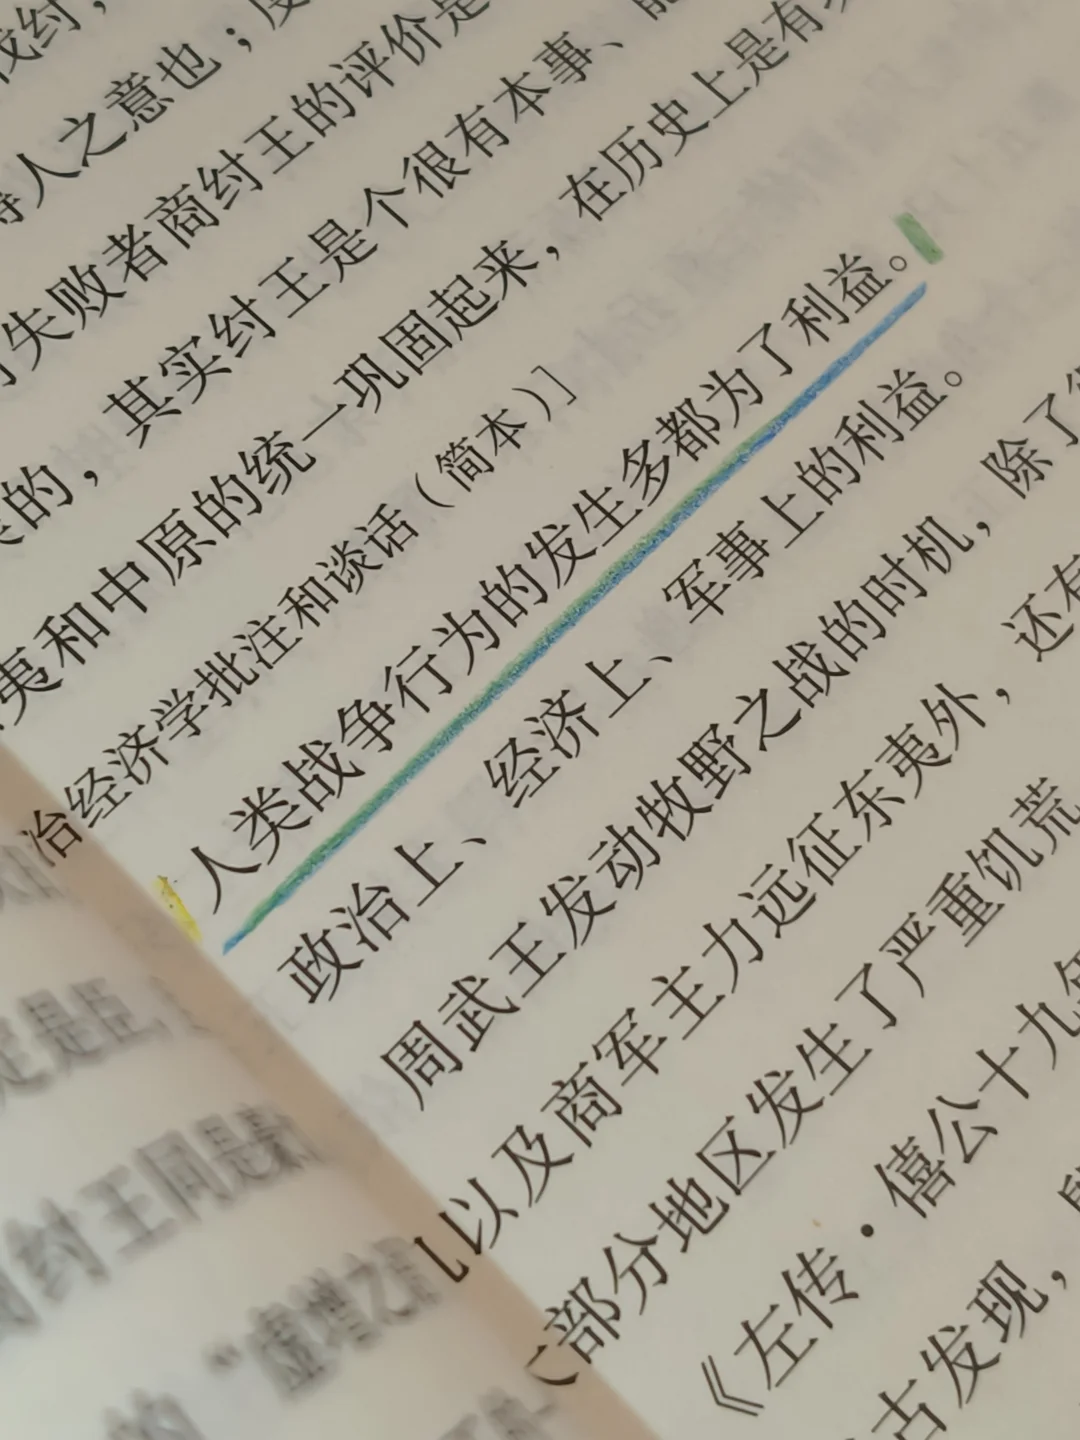 伐纣,
人之意也；
失败者商纣王的评价是
的，其实纣王是个很有本事、
夷和中原的统一巩固起来，在历史上是有
治经济学批注和谈话（简本）]
人类战争行为的发生多都为了利益。
政治上、经济上、军事上的利益。
周武王发动牧野之战的时机，除了
以及商军主力远征东夷外，还有
部分地区发生了严重饥荒
《左传·僖公十九年
古发现，
定是臣
纣王同是
“虚增之